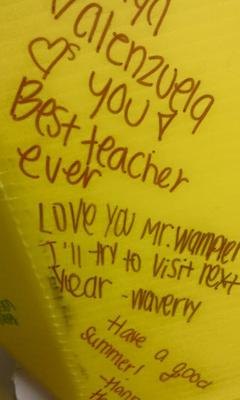 Valenzuela
♡s you
Best teacher
ever
LOVE YOU Mr. Wampler
I'll try to visit next
year - Waverly
Have a good
Summer!